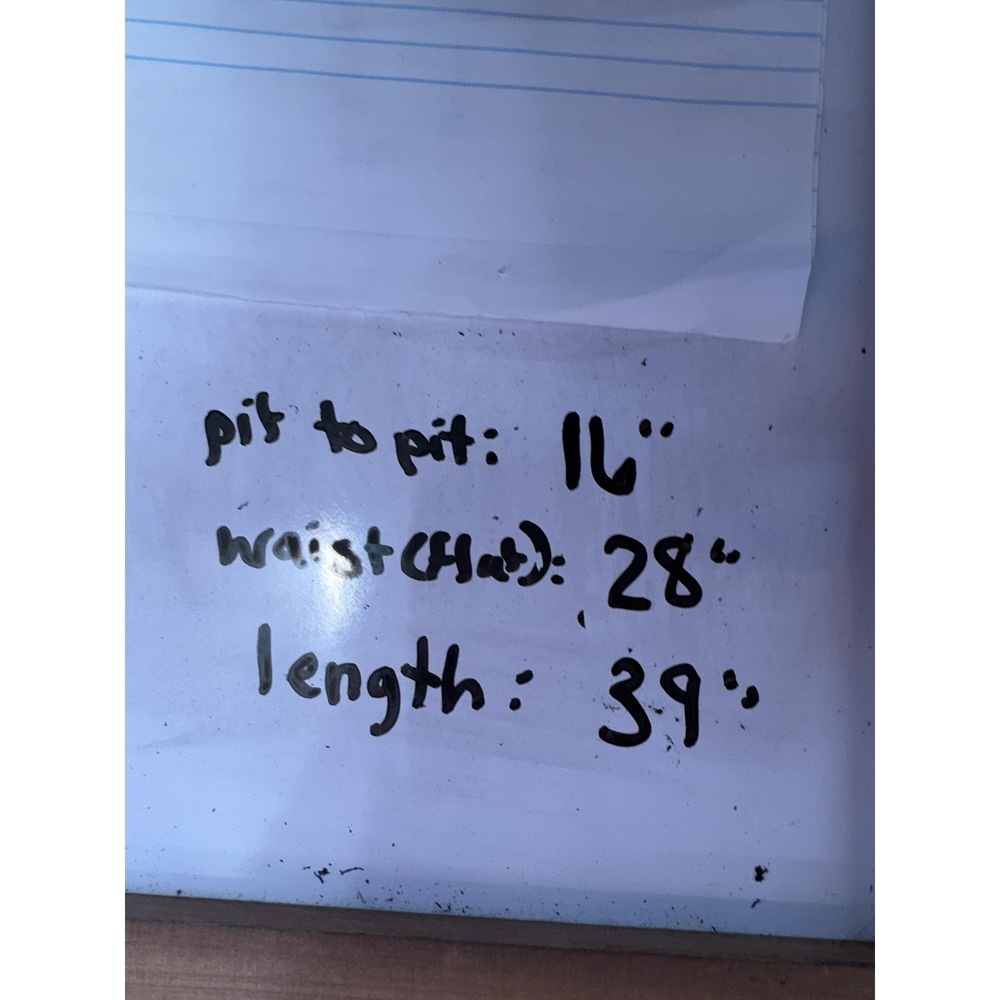 pit to pit: 16"
waist (flat): 28"
length: 39"